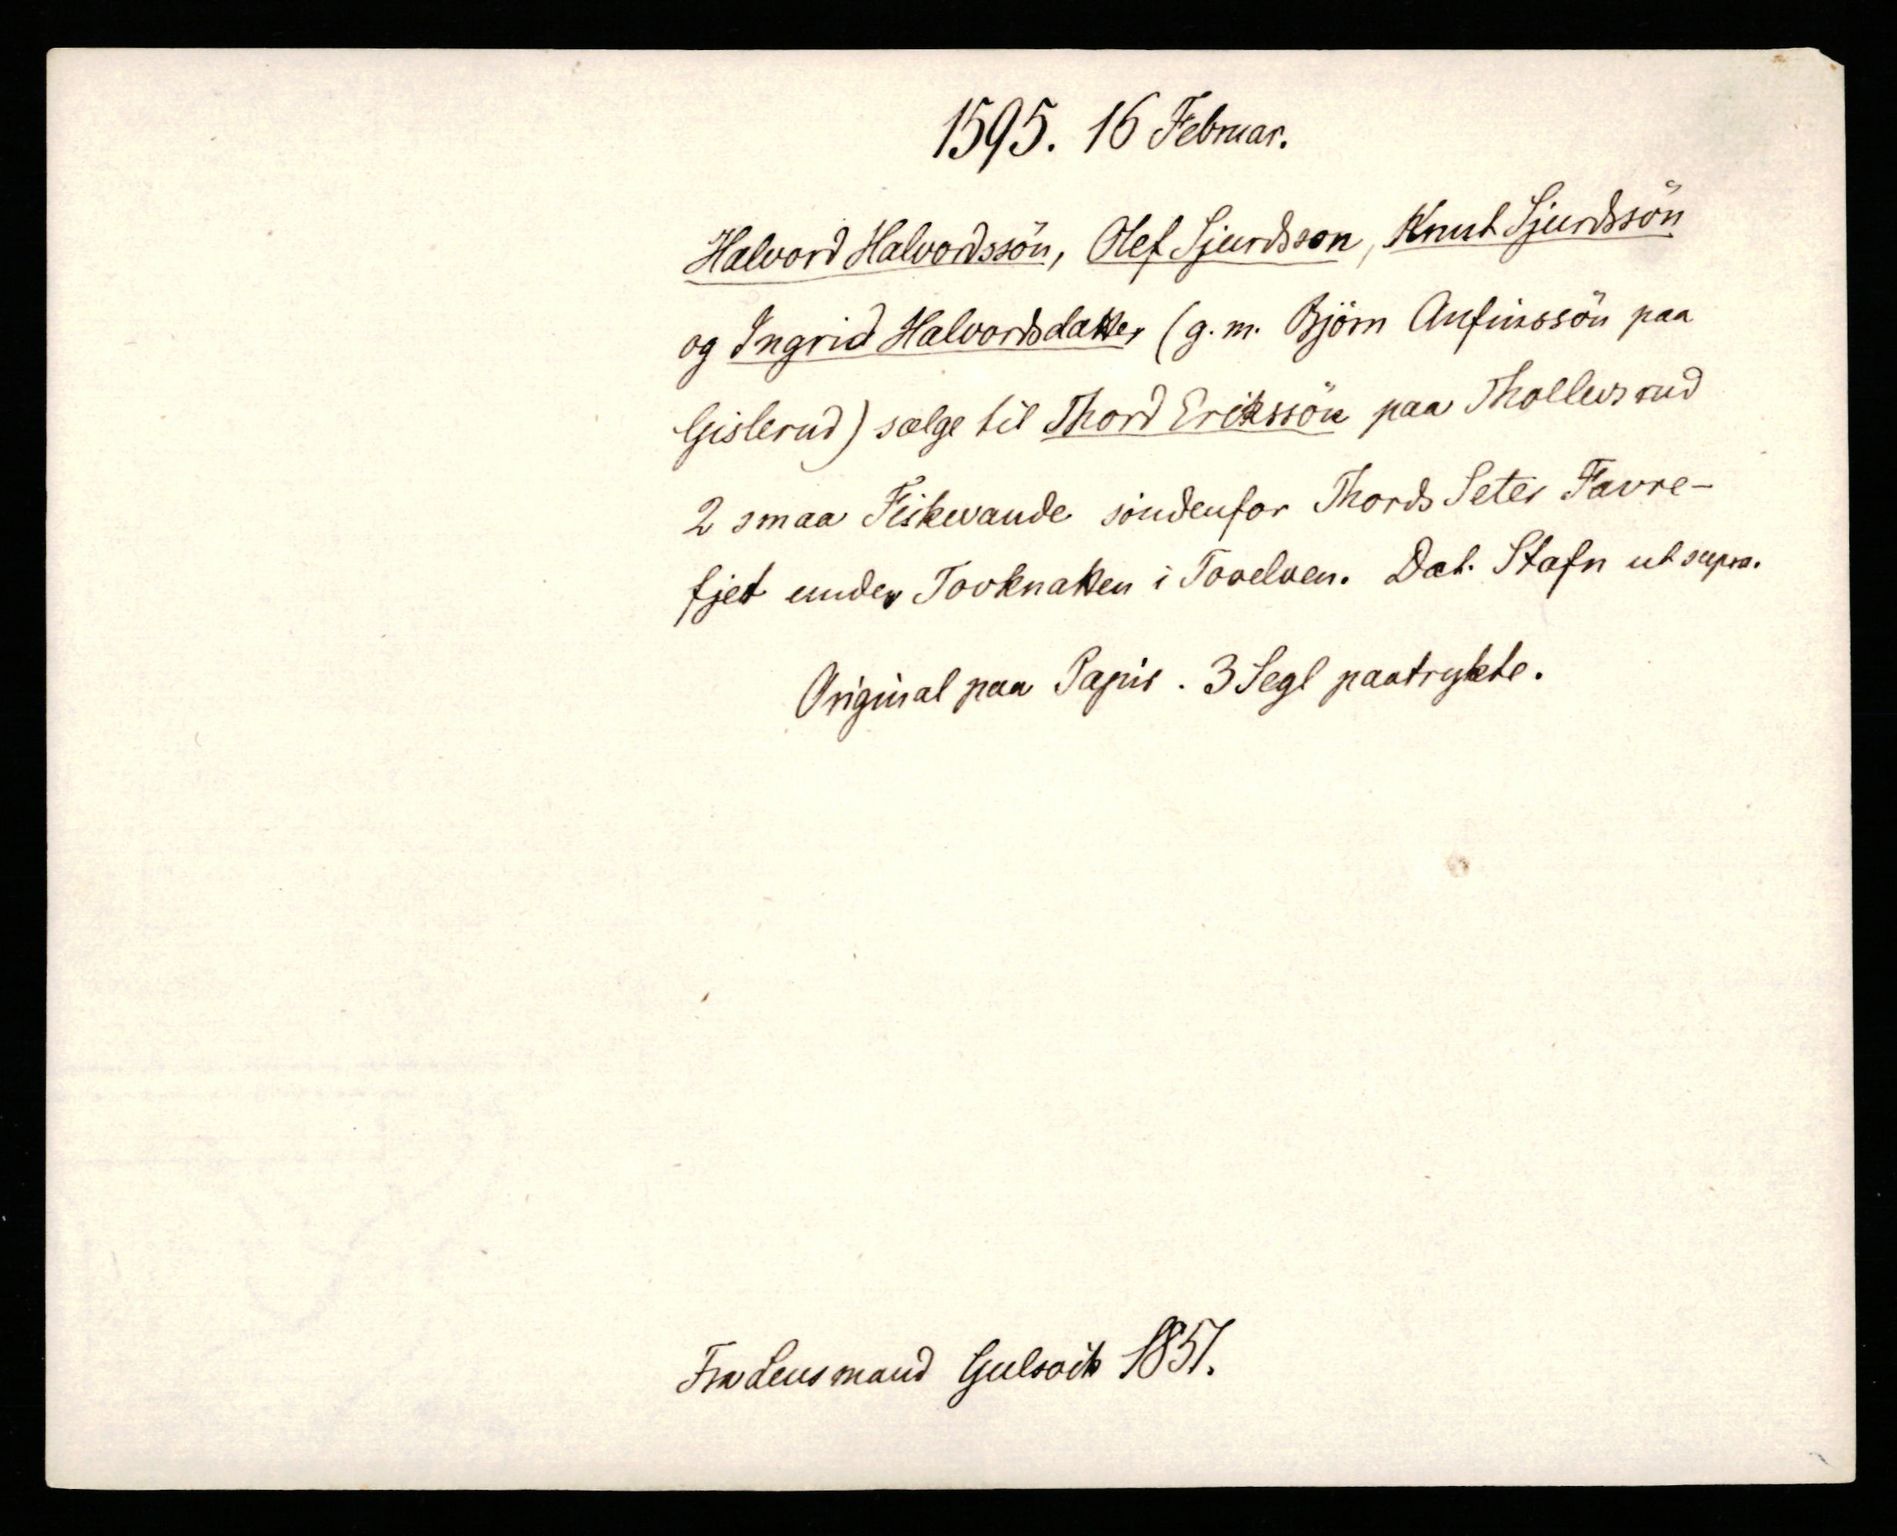 1595. 16 Februar.
Halvord Halvordssön, Olef Sjurdsson, Knut Sjurdssön
og Ingrid Halvordsdatter (g. m. Björn Anfinssön paa
Gislerud) sælge til Thord Erikssön paa Thollevsrud
2 smaa Fiskevande söndenfor Thords Seter Favre-
fjet under Tovknatten i Tovelven. Dat. Stafn ut supra.
Original paa Papir. 3 Segl paatrykte.
Fra Lensmand Gulsvik 1851.